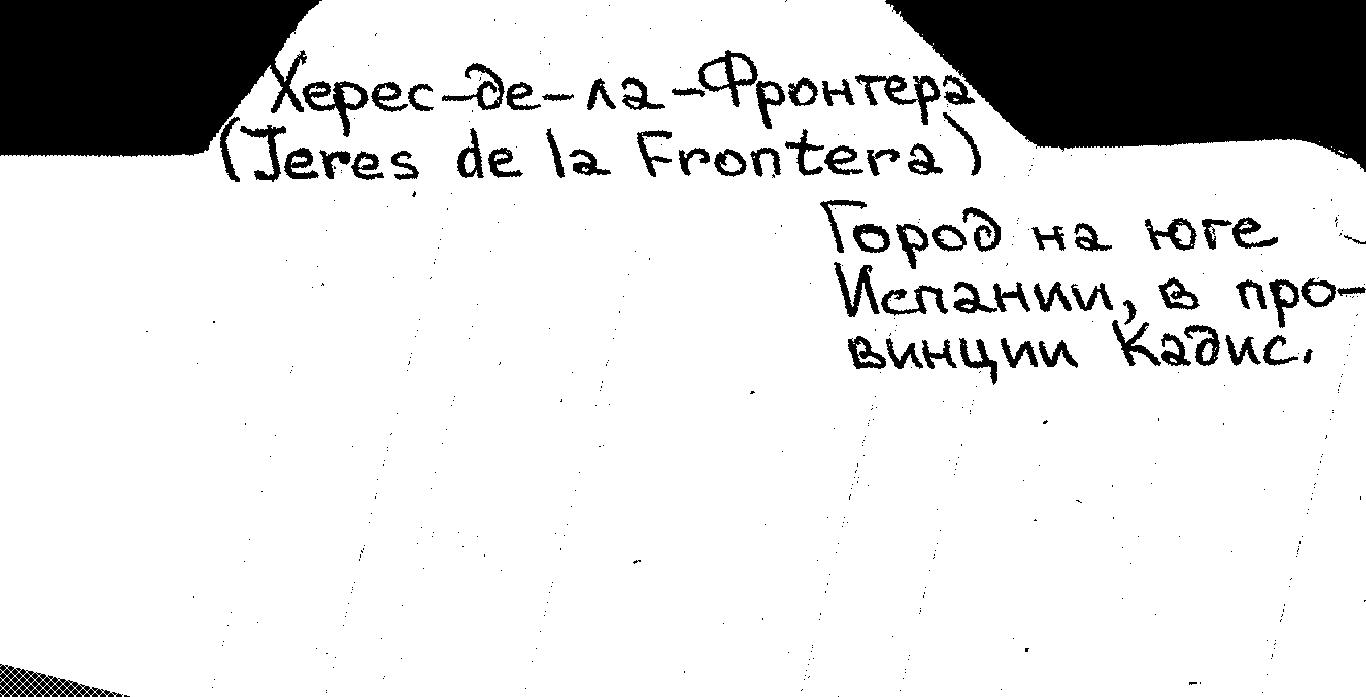 Херес-де-ла-Фронтера
(Jeres de la Frontera)
Город на юге
Испании, в про-
винции Кадис.